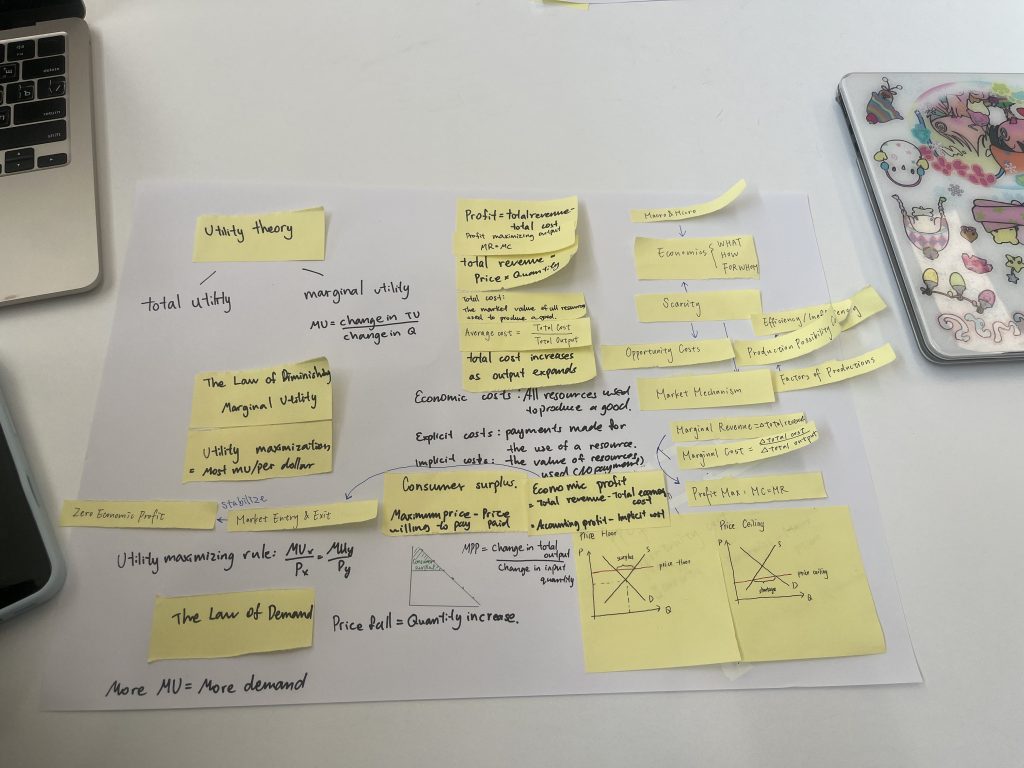 Utility theory
total utility
marginal utility
MU = change in TU
change in Q
The Law of Diminishing
Marginal Utility
Utility maximization
= Most MU/per dollar
Profit = total revenue -
total cost
Profit maximizing output
MR=MC
total revenue =
Price × Quantity
Total cost:
the market value of all resources
used to produce a good.
Average cost = Total Cost
Total Output
total cost increases
as output expands
Economic costs: All resources used
to produce a good.
Explicit costs: payments made for
the use of a resource.
Implicit costs: the value of resources
used (NO payment)
Macro & Micro
Economics { WHAT
HOW
FOR WHOM
Scarcity
Efficiency/
Opportunity Costs
Production Possibility
Market Mechanism
Factors of Productions
Marginal Revenue = Δtotal revenue
Marginal Cost = Δtotal cost
Δtotal output
Profit Max: MC=MR
Consumer surplus.
Maximum price - Price
willing to pay paid
Economic profit
= Total revenue - Total economic
cost
= Accounting profit - Implicit cost
Zero Economic Profit
stabilize
Market Entry & Exit
Utility maximizing rule: MUx = MUy
Px Py
consumer surplus
MPP = Change in total
output
Change in input
quantity
The Law of Demand
Price fall = Quantity increase.
More MU = More demand
Price Floor
P
surplus
S
price floor
D
Q
Price Ceiling
P
S
price ceiling
shortage
D
Q
delete
return
shift